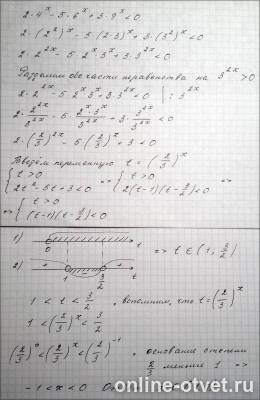 2·4ˣ - 5·6ˣ + 3·9ˣ < 0
2·(2²)ˣ - 5·(2·3)ˣ + 3·(3²)ˣ < 0
2·2²ˣ - 5·2ˣ·3ˣ + 3·3²ˣ < 0
Разделим обе части неравенства на 3²ˣ > 0
2·2²ˣ - 5·2ˣ·3ˣ + 3·3²ˣ < 0 | : 3²ˣ
2·2²ˣ/3²ˣ - 5·2ˣ·3ˣ/3²ˣ + 3·3²ˣ/3²ˣ < 0
2·(2/3)²ˣ - 5·(2/3)ˣ + 3 < 0
Введём переменную t = (2/3)ˣ
{ t > 0 => { t > 0 =>
{ 2t² - 5t + 3 < 0 { 2(t-1)(t - 3/2) < 0
=> { t > 0
{ (t-1)(t - 3/2) < 0
1) 0 t => t ∈ (1, 3/2)
2) + - + 1 3/2 t
1 < t < 3/2, вспомним, что t = (2/3)ˣ
1 < (2/3)ˣ < 3/2
(2/3)⁰ < (2/3)ˣ < (2/3)⁻¹, основание степени
2/3 меньше 1 =>
-1 < x < 0
online-otvet.ru